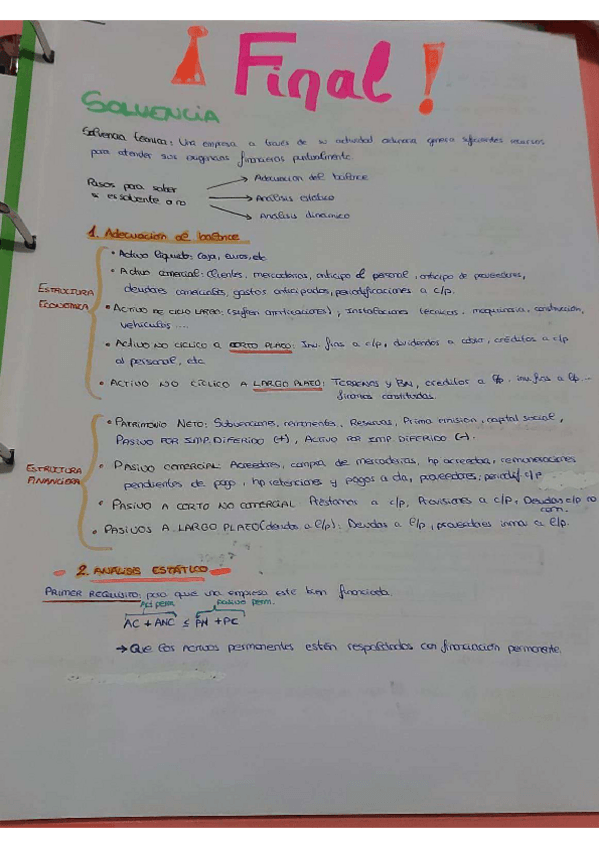 ¡Final!
SOLVENCIA
Solvencia técnica: Una empresa a través de su actividad ordinaria genera suficientes recursos
para atender sus exigencias financieras puntualmente.
Pasos para saber
si es solvente o no
→ Adecuación del balance
→ Análisis estático
→ Análisis dinámico
1. Adecuación de balance
ESTRUCTURA
ECONÓMICA
• Activo líquido: Caja, euros, etc
• Activo comercial: Clientes, mercaderías, anticipo de personal, anticipo de proveedores,
deudores comerciales, gastos anticipados, periodificaciones a c/p.
• ACTIVO DE CICLO LARGO: (sufren amortizaciones), Instalaciones técnicas, maquinaria, construcción,
vehículos ....
• Activo NO CÍCLICO a CORTO PLAZO: Inv. fras a c/p, dividendos a cobrar, créditos a c/p
al personal, etc
• ACTIVO NO CÍCLICO A LARGO PLAZO: TERRENOS y BN, créditos a l/p. inv. fras a l/p...
fianzas constituidas.
ESTRUCTURA
FINANCIERA
• PATRIMONIO NETO: Subvenciones, remanentes, Reservas, Prima emisión, capital social,
PASIVO POR IMP. DIFERIDO (+), ACTIVO POR IMP. DIFERIDO (-).
• PASIVO COMERCIAL: Acreedores, compra de mercaderías, hp acreedora, remuneraciones
pendientes de pago, hp retenciones y pagos a cta, proveedores, periodif c/p
• PASIVO A CORTO NO COMERCIAL Préstamos a c/p, Provisiones a c/p, Deudas c/p no
com.
• PASIVOS A LARGO PLAZO (deudas a l/p): Deudas a l/p, proveedores inmov a l/p.
2. ANÁLISIS ESTÁTICO
PRIMER REQUISITO: para que una empresa esté bien financiada.
Act perm. pasivo perm.
AC + ANC ≤ PN + PC
→ Que los activos permanentes estén respaldados con financiación permanente.